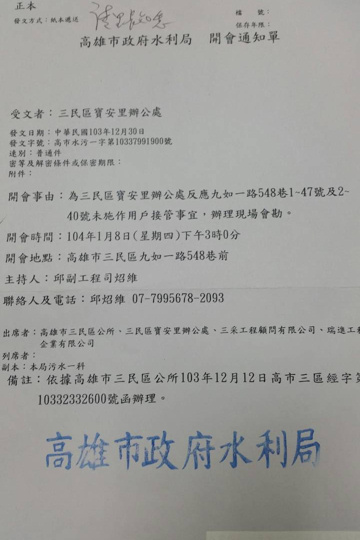 正本
檔 號：
發文方式：紙本遞送
保存年限：
高雄市政府水利局 開會通知單
受文者：三民區寶安里辦公處
發文日期：中華民國103年12月30日
發文字號：高市水污一字第10337991900號
速別：普通件
密等及解密條件或保密期限：
附件：
開會事由：為三民區寶安里辦公處反應九如一路548巷1~47號及2~
40號未施作用戶接管事宜，辦理現場會勘。
開會時間：104年1月8日(星期四)下午3時0分
開會地點：高雄市三民區九如一路548巷前
主持人：邱副工程司炤維
聯絡人及電話：邱炤維 07-7995678-2093
出席者：高雄市三民區公所、三民區寶安里辦公處、三采工程顧問有限公司、瑞進工程
企業有限公司
列席者：
副本：本局污水一科
備註：依據高雄市三民區公所103年12月12日高市三區經字第
10332332600號函辦理。
高雄市政府水利局